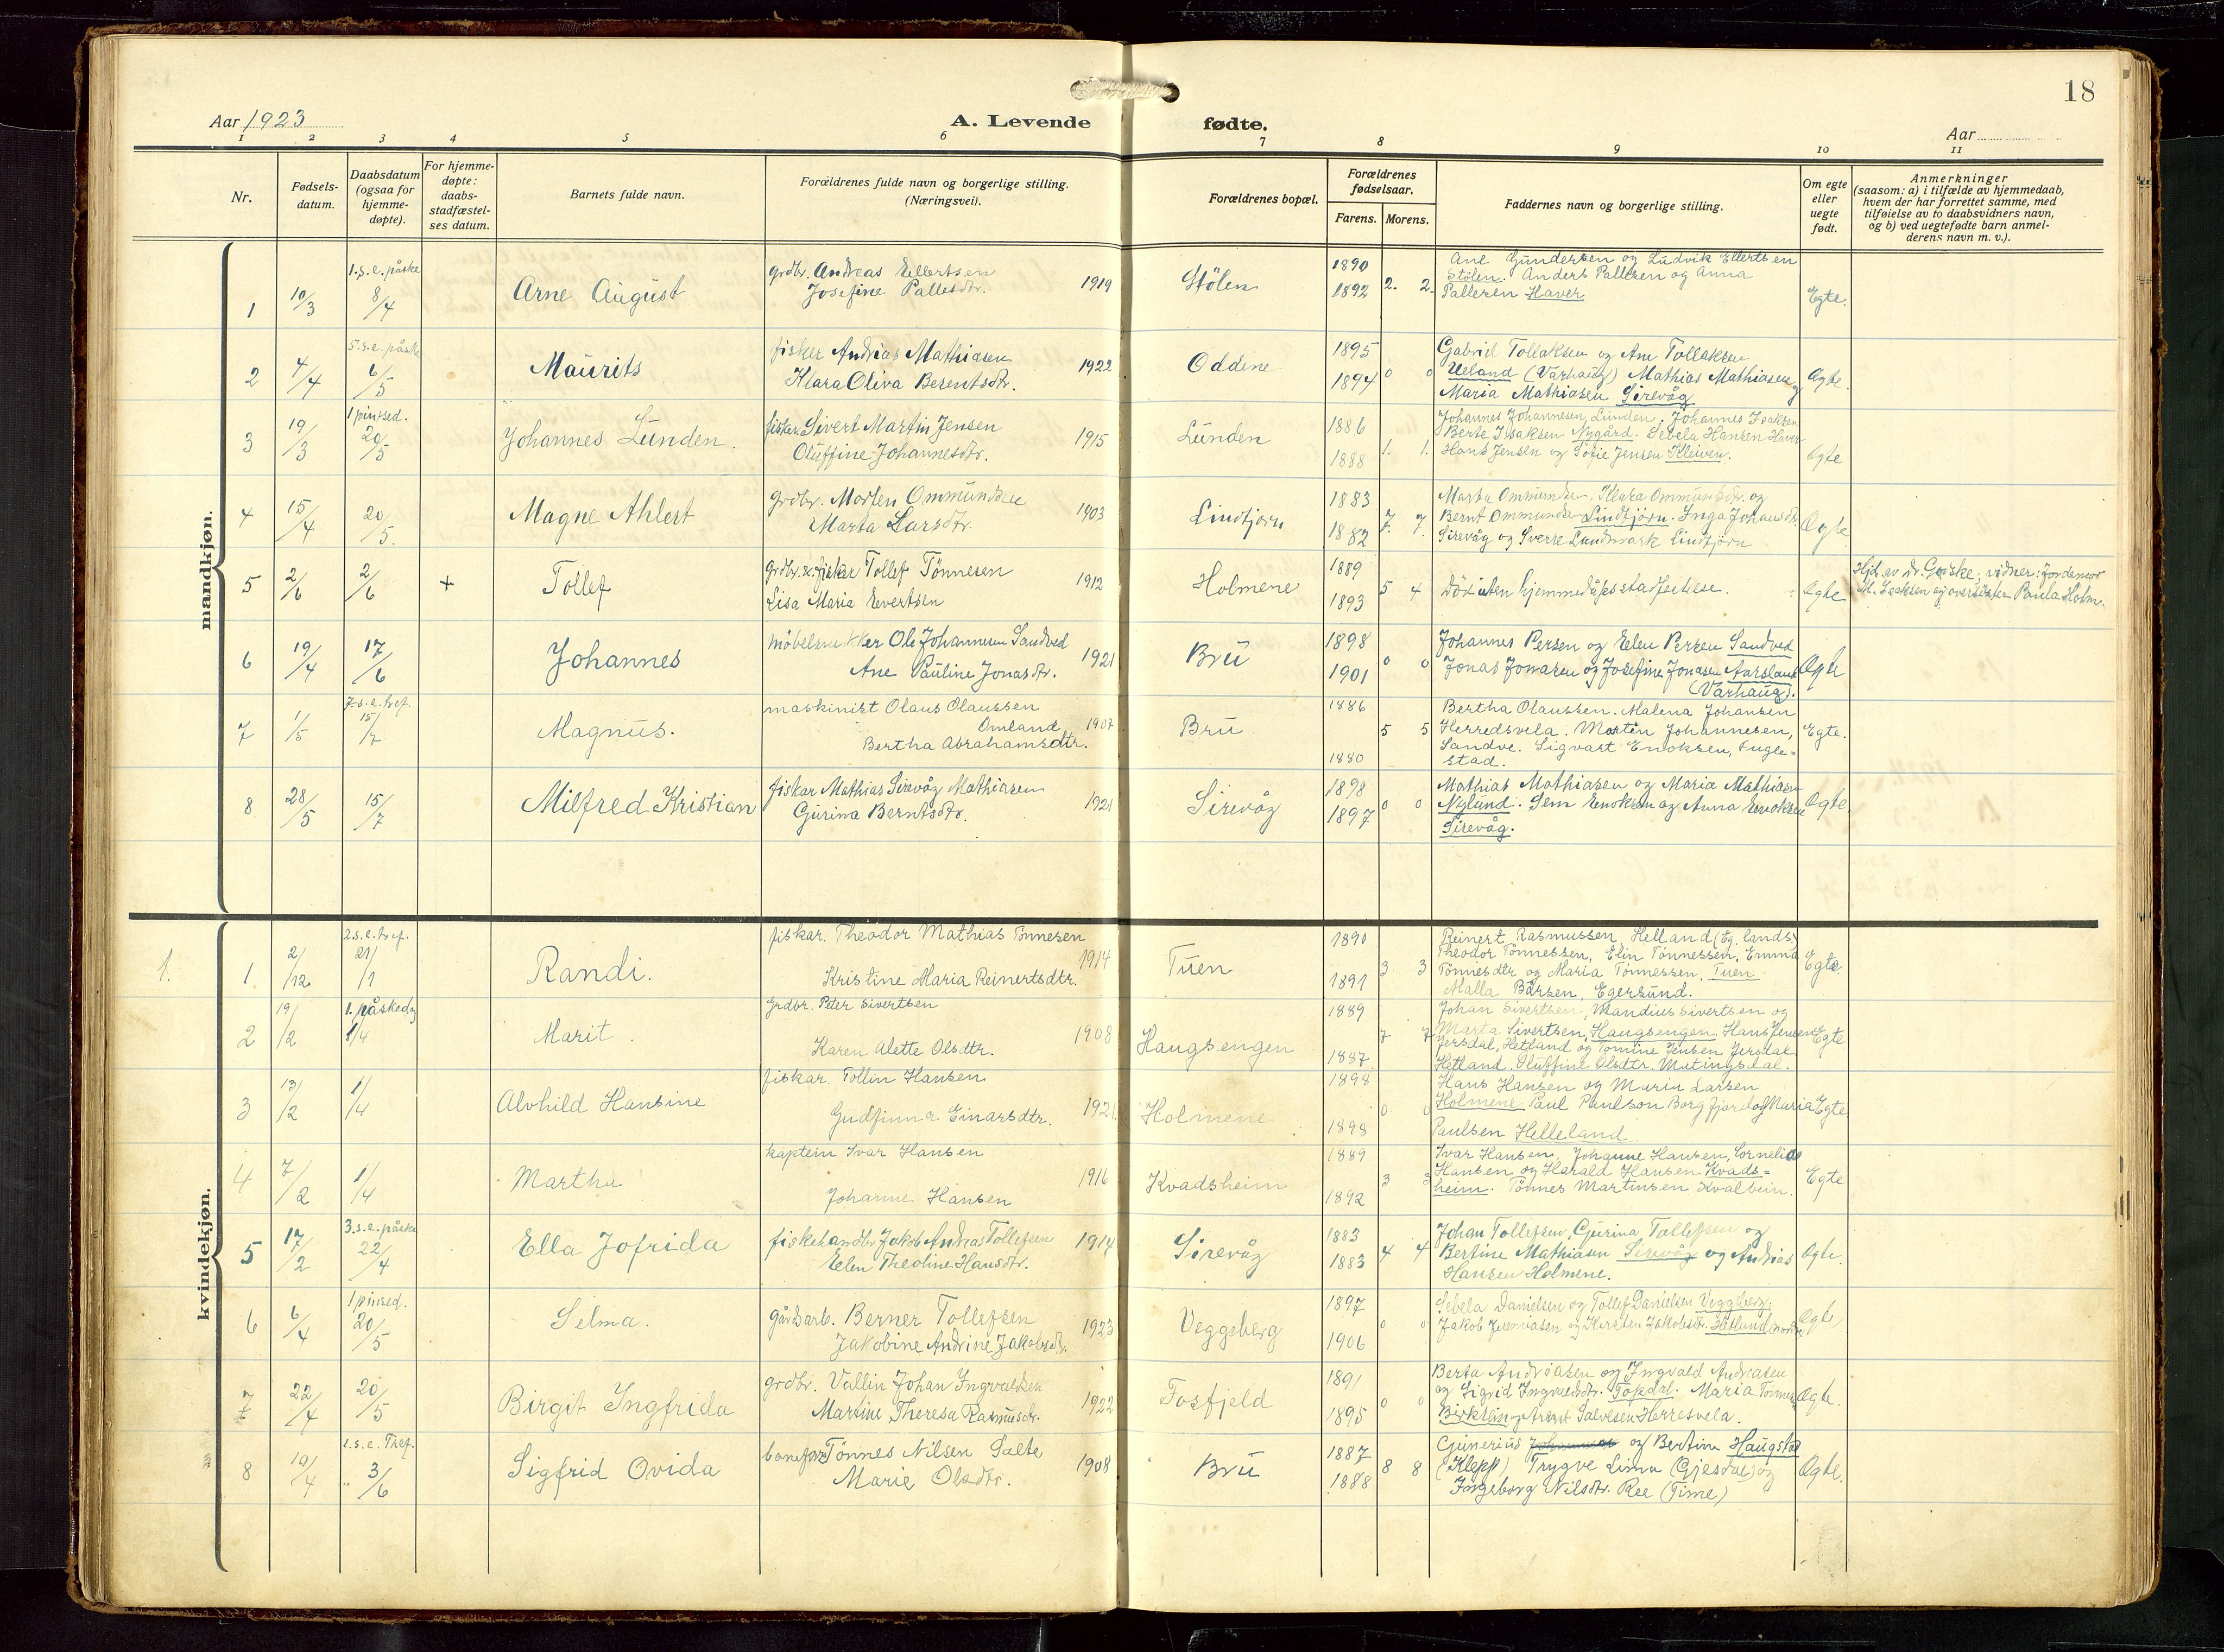 18
Aar 1923
A. Levende
fødte.
Aar
1 2 3 4 5 6 7 8 9 10 11
Nr.
Fødsels-
datum.
Daabsdatum
(ogsaa for
hjemme-
døpte).
For hjemme-
døpte:
daabs-
stadfæstel-
ses datum.
Barnets fulde navn.
Forældrenes fulde navn og borgerlige stilling.
(Næringsvei).
Forældrenes bopæl.
Forældrenes
fødselsaar.
Farens. Morens.
Faddernes navn og borgerlige stilling.
Om egte
eller
uegte
født.
Anmerkninger
(saasom: a) i tilfælde av hjemmedaab,
hvem der har forrettet samme, med
tilføielse av to daabsvidners navn,
og b) ved uegtefødte barn anmel-
derens navn m. v.).
mandkjøn.
1
10/3
1. s. e. påske
8/4
Arne August
grdbr. Andreas Ellertsen
Josefine Pallesdtr.
1919
Stölen
1890
1892
2. 2.
Ane Gundersen og Ludvik Ellertsen
Stölen. Anders Pallesen og Anna
Pallesen Haver
Egte.
2
4/4
5. s. e. påske
6/5
Maurits
fisker Andreas Mathiasen
Klara Oliva Berentsdtr.
1922
Oddene
1895
1894
0 0
Gabriel Tollaksen og Ane Tollaksen
Ueland (Varhaug) Mathias Mathiasen og
Maria Mathiasen Sirevåg
Egte.
3
19/3
1 pinsed.
20/5
Johannes Lunden.
fiskar Sivert Martin Jensen
Oluffine Johannesdtr.
1915
Lunden
1886
1888
1. 1.
Johannes Johannesen Lunden. Johannes Isaksen
Berte Isaksen Nygård. Sebela Hansen Haver
Hans Jensen og Sofie Jensen Kleiven.
Egte
4
15/4
20/5.
Magne Ahlert
Grdbr. Morten Ommundsen
Marta Larsdtr.
1903
Lindtjørn
1883
1882
7. 7.
Marta Ommundsen, Klara Ommundsdtr. og
Bernt Ommundsen Lindtjörn. Inga Johansdtr
Sirevåg og Sverre Lundmark Lindtjörn
Egte
5
2/6
2/6
+
Tollef
grdbr. & fisker Tollef Tönnesen
Lisa Maria Evertsen
1912
Holmene
1889
1893
5 4
Död uten hjemmedåpsstadfestelse.
Egte
Hjd. av dr. Geiske; vidner: Jordemor
M. Isaksen og oversöster Paula Holm.
6
19/4
17/6
Johannes
möbelsnekker Ole Johannesen Sandved
Ane Pauline Jonasdtr.
1921
Bru
1898
1901
0 0
Johannes Persen og Elen Persen Sandved
Jonas Jonasen og Josefine Jonasen Aarsland
(Varhaug).
Egte
7
1/5
7. s. e. tref.
15/7
Magnus.
maskinist Olaus Olaussen
Omland
Bertha Abrahamsdtr.
1907
Bru
1886
1880
5 5
Bertha Olaussen. Malena Johansen
Herredsvela. Morten Johannesen,
Sandve. Sigvart Enoksen, Fugle=
stad.
Egte.
8
28/5
15/7
Milfred Kristian
fiskar Mathias Sirevåg Mathiasen
Gurina Berntsdtr.
1921
Sirevåg
1898
1897
0 0
Mathias Mathiasen og Maria Mathiasen
Nylund. Sem Enoksen og Anna Enoksen
Sirevåg.
Egte.
kvindekjøn.
1.
1
2/12
2. s. e. tref.
21/1
Randi.
fiskar. Theodor Mathias Tönnesen
Kristine Maria Reinertsdtr.
1914
Tuen
1890
1891
3 3
Reinert Rasmussen, Helland (Eg. lands.)
Theodor Tönnessen, Elin Tönnessen, Emma
Tönnesdtr og Maria Tönnessen, Tuen
Malla Bårsen, Egersund.
Egte
2
19/2
1. påskedag
1/4
Marit.
Grdbr. Peter Sivertsen
Karen Alette Olsdtr.
1908
Haugsengen
1889
1887
7 7
Johan Sivertsen, Mandius Sivertsen og
Marta Sivertsen, Haugsengen. Hans Jensen
Jersdal, Hetland og Tomine Jensen Jersdal
Hetland. Oluffine Olsdtr. Matingsdal.
Egte
3
13/2
1/4
Alvhild Hansine
fiskar. Tollin Hansen
Gudfinna Einarsdtr.
1921.
Holmene
1898
1898
0 0
Hans Hansen og Maria Larsen
Holmene Paul Paulson Borgfjord og Maria
Paulsen Helleland
Egte
4
7/2
1/4
Martha
kaptein Ivar Hansen
Johanne Hansen
1916
Kvadsheim
1889
1892
3 3
Ivar Hansen, Johanne Hansen, Cornelia
Hansen og Harald Hansen Kvads=
heim. Tönnes Martinsen Kvalbein.
Egte
5
17/2
3. s. e. påske
22/4
Ella Jofrida
fiskehandlr. Jakob Andreas Tollefsen
Elen Theoline Hansdtr.
1914
Sirevåg
1883
1883
4 4
Johan Tollefsen, Gurina Tollefsen og
Bertine Mathiasen Sirevåg og Andreas
Hansen Holmene.
Egte.
6
6/4
1 pinsed.
20/5
Selma.
gårdsarb. Berner Tollefsen
Jakobine Andrine Jakobsdtr.
1923
Veggeberg
1897
1906
0 0
Sebela Danielsen og Tollef Danielsen Veggeberg.
Jakob Jeremiasen og Kirsten Jakobsdtr. Hetland
Egte
7
22/4
20/5
Birgit Ingfrida
grdbr. Vallin Johan Ingvaldsen
Martine Theresa Rasmusdtr.
1922
Fosfjeld
1891
1895
0 0
Berta Andreasen og Ingvald Andreasen
og Sigrid Ingvaldsdtr. Topdal. Maria Tönnes
Birkrem, Arent Salvesen Herresvela.
Egte.
8
19/4
1. s. e. Tref.
3/6
Sigfrid Ovida
baneform Tönnes Nilsen Salte
Marie Olsdtr.
1908
Bru
1887
1888
8 8
Gunerius og Bertine Haugstad
(Klepp) Trygve Lima (Gjesdal) og
Ingeborg Nilsdtr. Ree (Time)
Egte.